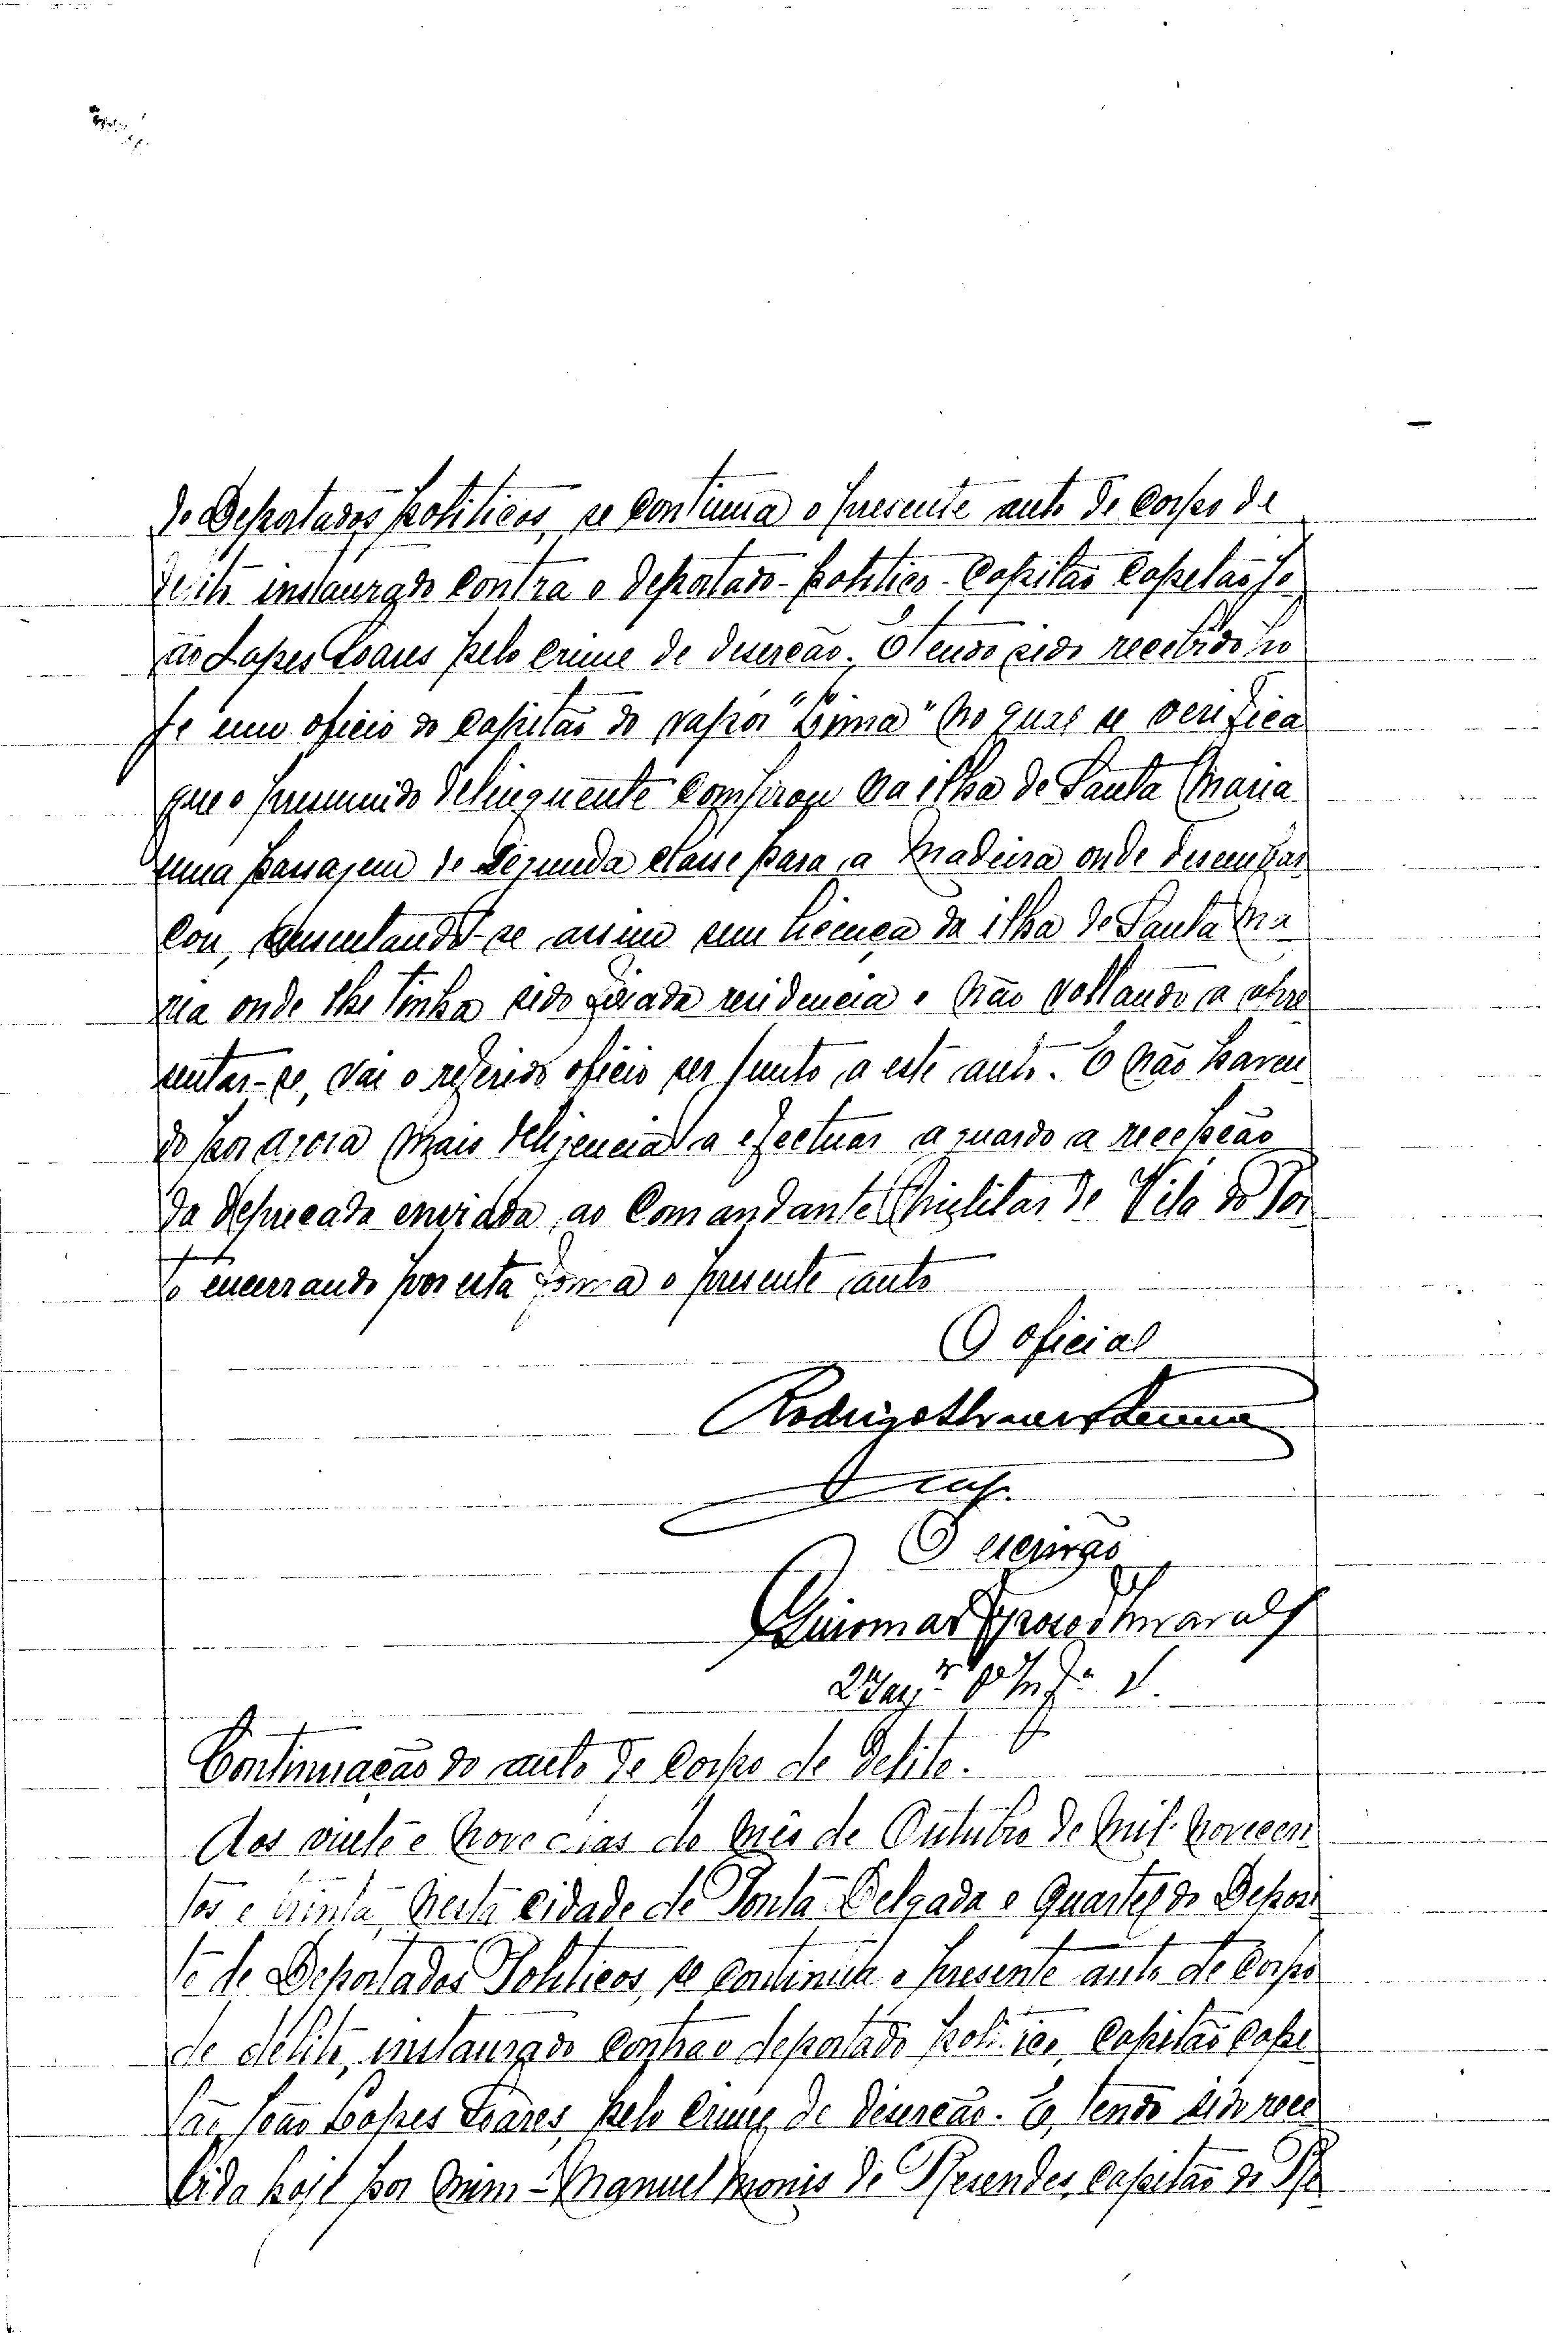 de Deportados politicos, se continua o presente auto de corpo de
delito instaurado contra o deportado politico Capitão Capelão Jo
ão Lopes Soares pelo crime de deserção. E tendo sido recebido ho
je um oficio do capitão do vapor "Lima" no qual se verifica
que o presumido delinquente comprou na ilha de Santa Maria
uma passajem de segunda classe para a Madeira onde desembar
cou, ausentando-se assim sem licença da ilha de Santa Ma
ria onde lhe tinha sido fixada residencia e não voltando a apre
sentar-se, vai o referido oficio ser junto a este auto. E não haven
do por agora mais delijencias a efectuar aguardo a recepção
da deprecada enviada ao Comandante Militar de Vila do Por
to encerrando por esta forma o presente auto
O oficial
Rodrigo
O escrivão
Continuação do auto de corpo de delito.
Aos vinte e nove dias do mês de Outubro de mil novecen
tos e trinta, nesta cidade de Ponta Delgada e Quartel do Deposi
to de Deportados Politicos, se continua o presente auto de corpo
de delito, instaurado contra o deportado politico, Capitão Cape
lão João Lopes Soares, pelo crime de deserção. E, tendo sido rece
bida hoje por mim Manuel Monis de Resendes, capitão de